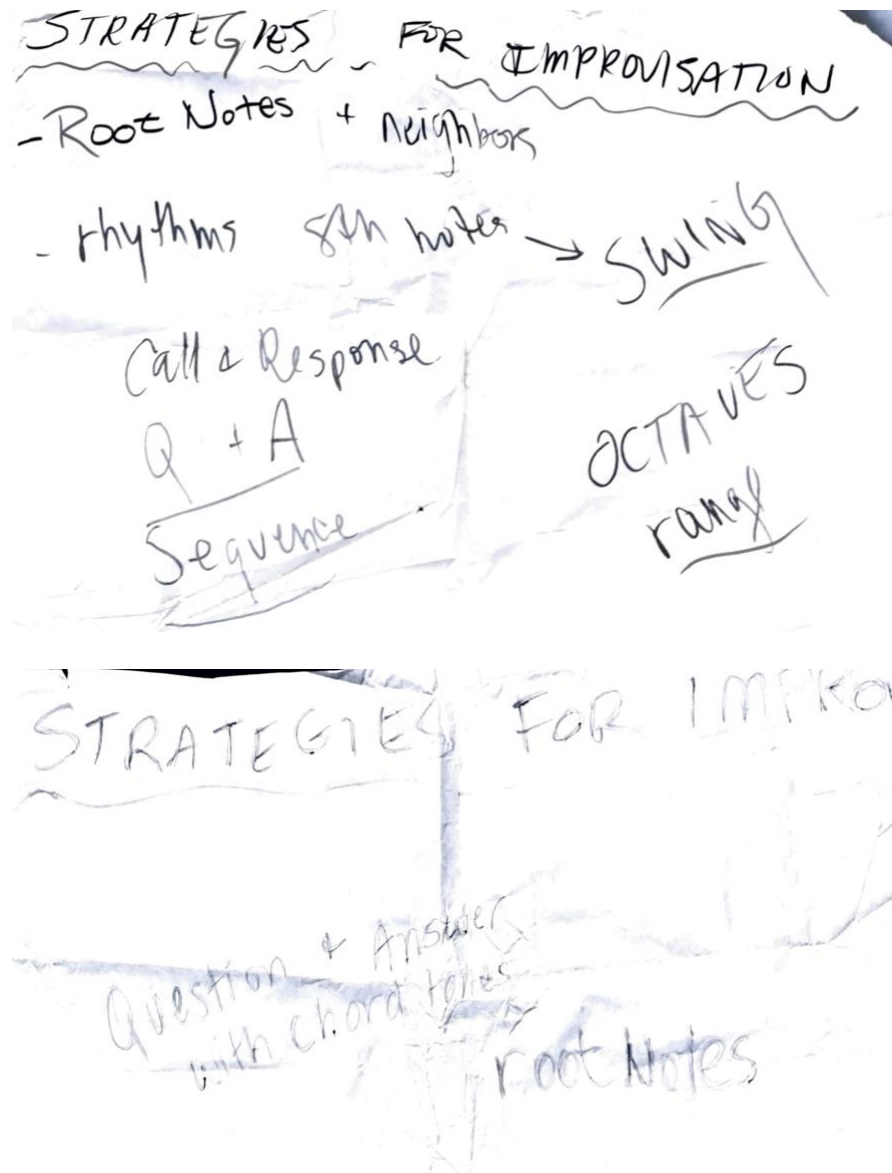 STRATEGIES FOR IMPROVISATION
- Root Notes + neighbors
- rhythms 8th notes → SWING
Call & Response
Q + A
Sequence
OCTAVES
range
STRATEGIES FOR IMPRO
Question + Answer
with chord tones
root Notes